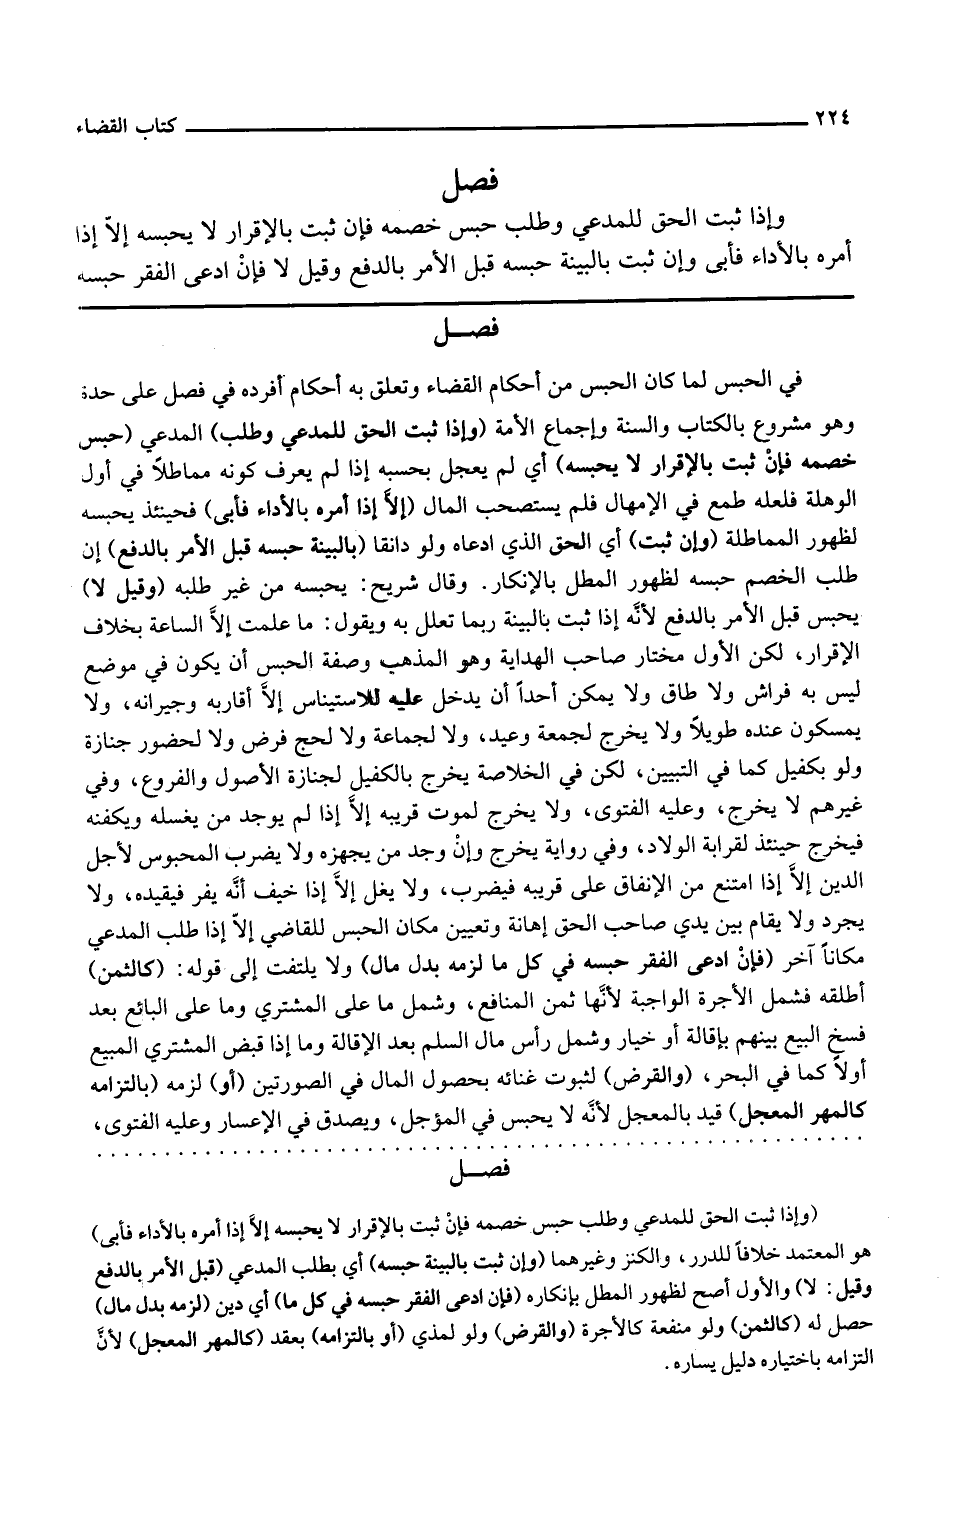 ٢٢٤ كتاب القضاء
فصل
وإذا ثبت الحق للمدعي وطلب حبس خصمه فإن ثبت بالإقرار لا يحبسه إلاّ إذا
أمره بالأداء فأبى وإن ثبت بالبينة حبسه قبل الأمر بالدفع وقيل لا فإنْ ادعى الفقر حبسه
فصــل
في الحبس لما كان الحبس من أحكام القضاء وتعلق به أحكام أفرده في فصل على حدة
وهو مشروع بالكتاب والسنة وإجماع الأمة (وإذا ثبت الحق للمدعي وطلب) المدعي (حبس
خصمه فإنْ ثبت بالإقرار لا يحبسه) أي لم يعجل بحسبه إذا لم يعرف كونه مماطلاً في أول
الوهلة فلعله طمع في الإمهال فلم يستصحب المال (إلاَّ إذا أمره بالأداء فأبى) فحينئذ يحبسه
لظهور المماطلة (وإن ثبت) أي الحق الذي ادعاه ولو دانقا (بالبينة حبسه قبل الأمر بالدفع) إن
طلب الخصم حبسه لظهور المطل بالإنكار. وقال شريح: يحبسه من غير طلبه (وقيل لا)
يحبس قبل الأمر بالدفع لأنَّه إذا ثبت بالبينة ربما تعلل به ويقول: ما علمت إلاَّ الساعة بخلاف
الإقرار، لكن الأول مختار صاحب الهداية وهو المذهب وصفة الحبس أن يكون في موضع
ليس به فراش ولا طاق ولا يمكن أحداً أن يدخل عليه للاستيناس إلاَّ أقاربه وجيرانه، ولا
يمسكون عنده طويلاً ولا يخرج لجمعة وعيد، ولا لجماعة ولا لحج فرض ولا لحضور جنازة
ولو بكفيل كما في التبيين، لكن في الخلاصة يخرج بالكفيل لجنازة الأصول والفروع، وفي
غيرهم لا يخرج، وعليه الفتوى، ولا يخرج لموت قريبه إلاَّ إذا لم يوجد من يغسله ويكفنه
فيخرج حينئذ لقرابة الولاد، وفي رواية يخرج وإنْ وجد من يجهزه ولا يضرب المحبوس لأجل
الدين إلاَّ إذا امتنع من الإنفاق على قريبه فيضرب، ولا يغل إلاَّ إذا خيف أنَّه يفر فيقيده، ولا
يجرد ولا يقام بين يدي صاحب الحق إهانة وتعيين مكان الحبس للقاضي إلاّ إذا طلب المدعي
مكاناً آخر (فإنْ ادعى الفقر حبسه في كل ما لزمه بدل مال) ولا يلتفت إلى قوله: (كالثمن)
أطلقه فشمل الأجرة الواجبة لأنَّها ثمن المنافع، وشمل ما على المشتري وما على البائع بعد
فسخ البيع بينهم بإقالة أو خيار وشمل رأس مال السلم بعد الإقالة وما إذا قبض المشتري المبيع
أولاً كما في البحر، (والقرض) لثبوت غنائه بحصول المال في الصورتين (أو) لزمه (بالتزامه
كالمهر المعجل) قيد بالمعجل لأنَّه لا يحبس في المؤجل، ويصدق في الإعسار وعليه الفتوى،
فصــل
(وإذا ثبت الحق للمدعي وطلب حبس خصمه فإنْ ثبت بالإقرار لا يحبسه إلاَّ إذا أمره بالأداء فأبى)
هو المعتمد خلافاً للدرر، والكنز وغيرهما (وإن ثبت بالبينة حبسه) أي بطلب المدعي (قبل الأمر بالدفع
وقيل: لا) والأول أصح لظهور المطل بإنكاره (فإن ادعى الفقر حبسه في كل ما) أي دين (لزمه بدل مال)
حصل له (كالثمن) ولو منفعة كالأجرة (والقرض) ولو لمذي (أو بالتزامه) بعقد (كالمهر المعجل) لأنَّ
التزامه باختياره دليل يساره.